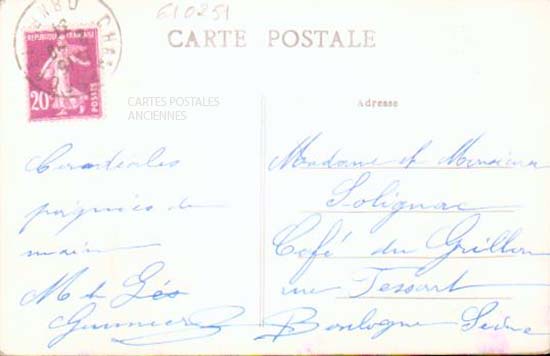 610251
CARTE POSTALE
REPUBLIQUE FRANÇAISE
20c
POSTES
CARTES POSTALES
ANCIENNES
Adresse
Cordiales
poignées de
main
M et
Madame et Monsieur
Solignac
Café du Grillon
rue Tessart
Boulogne Seine